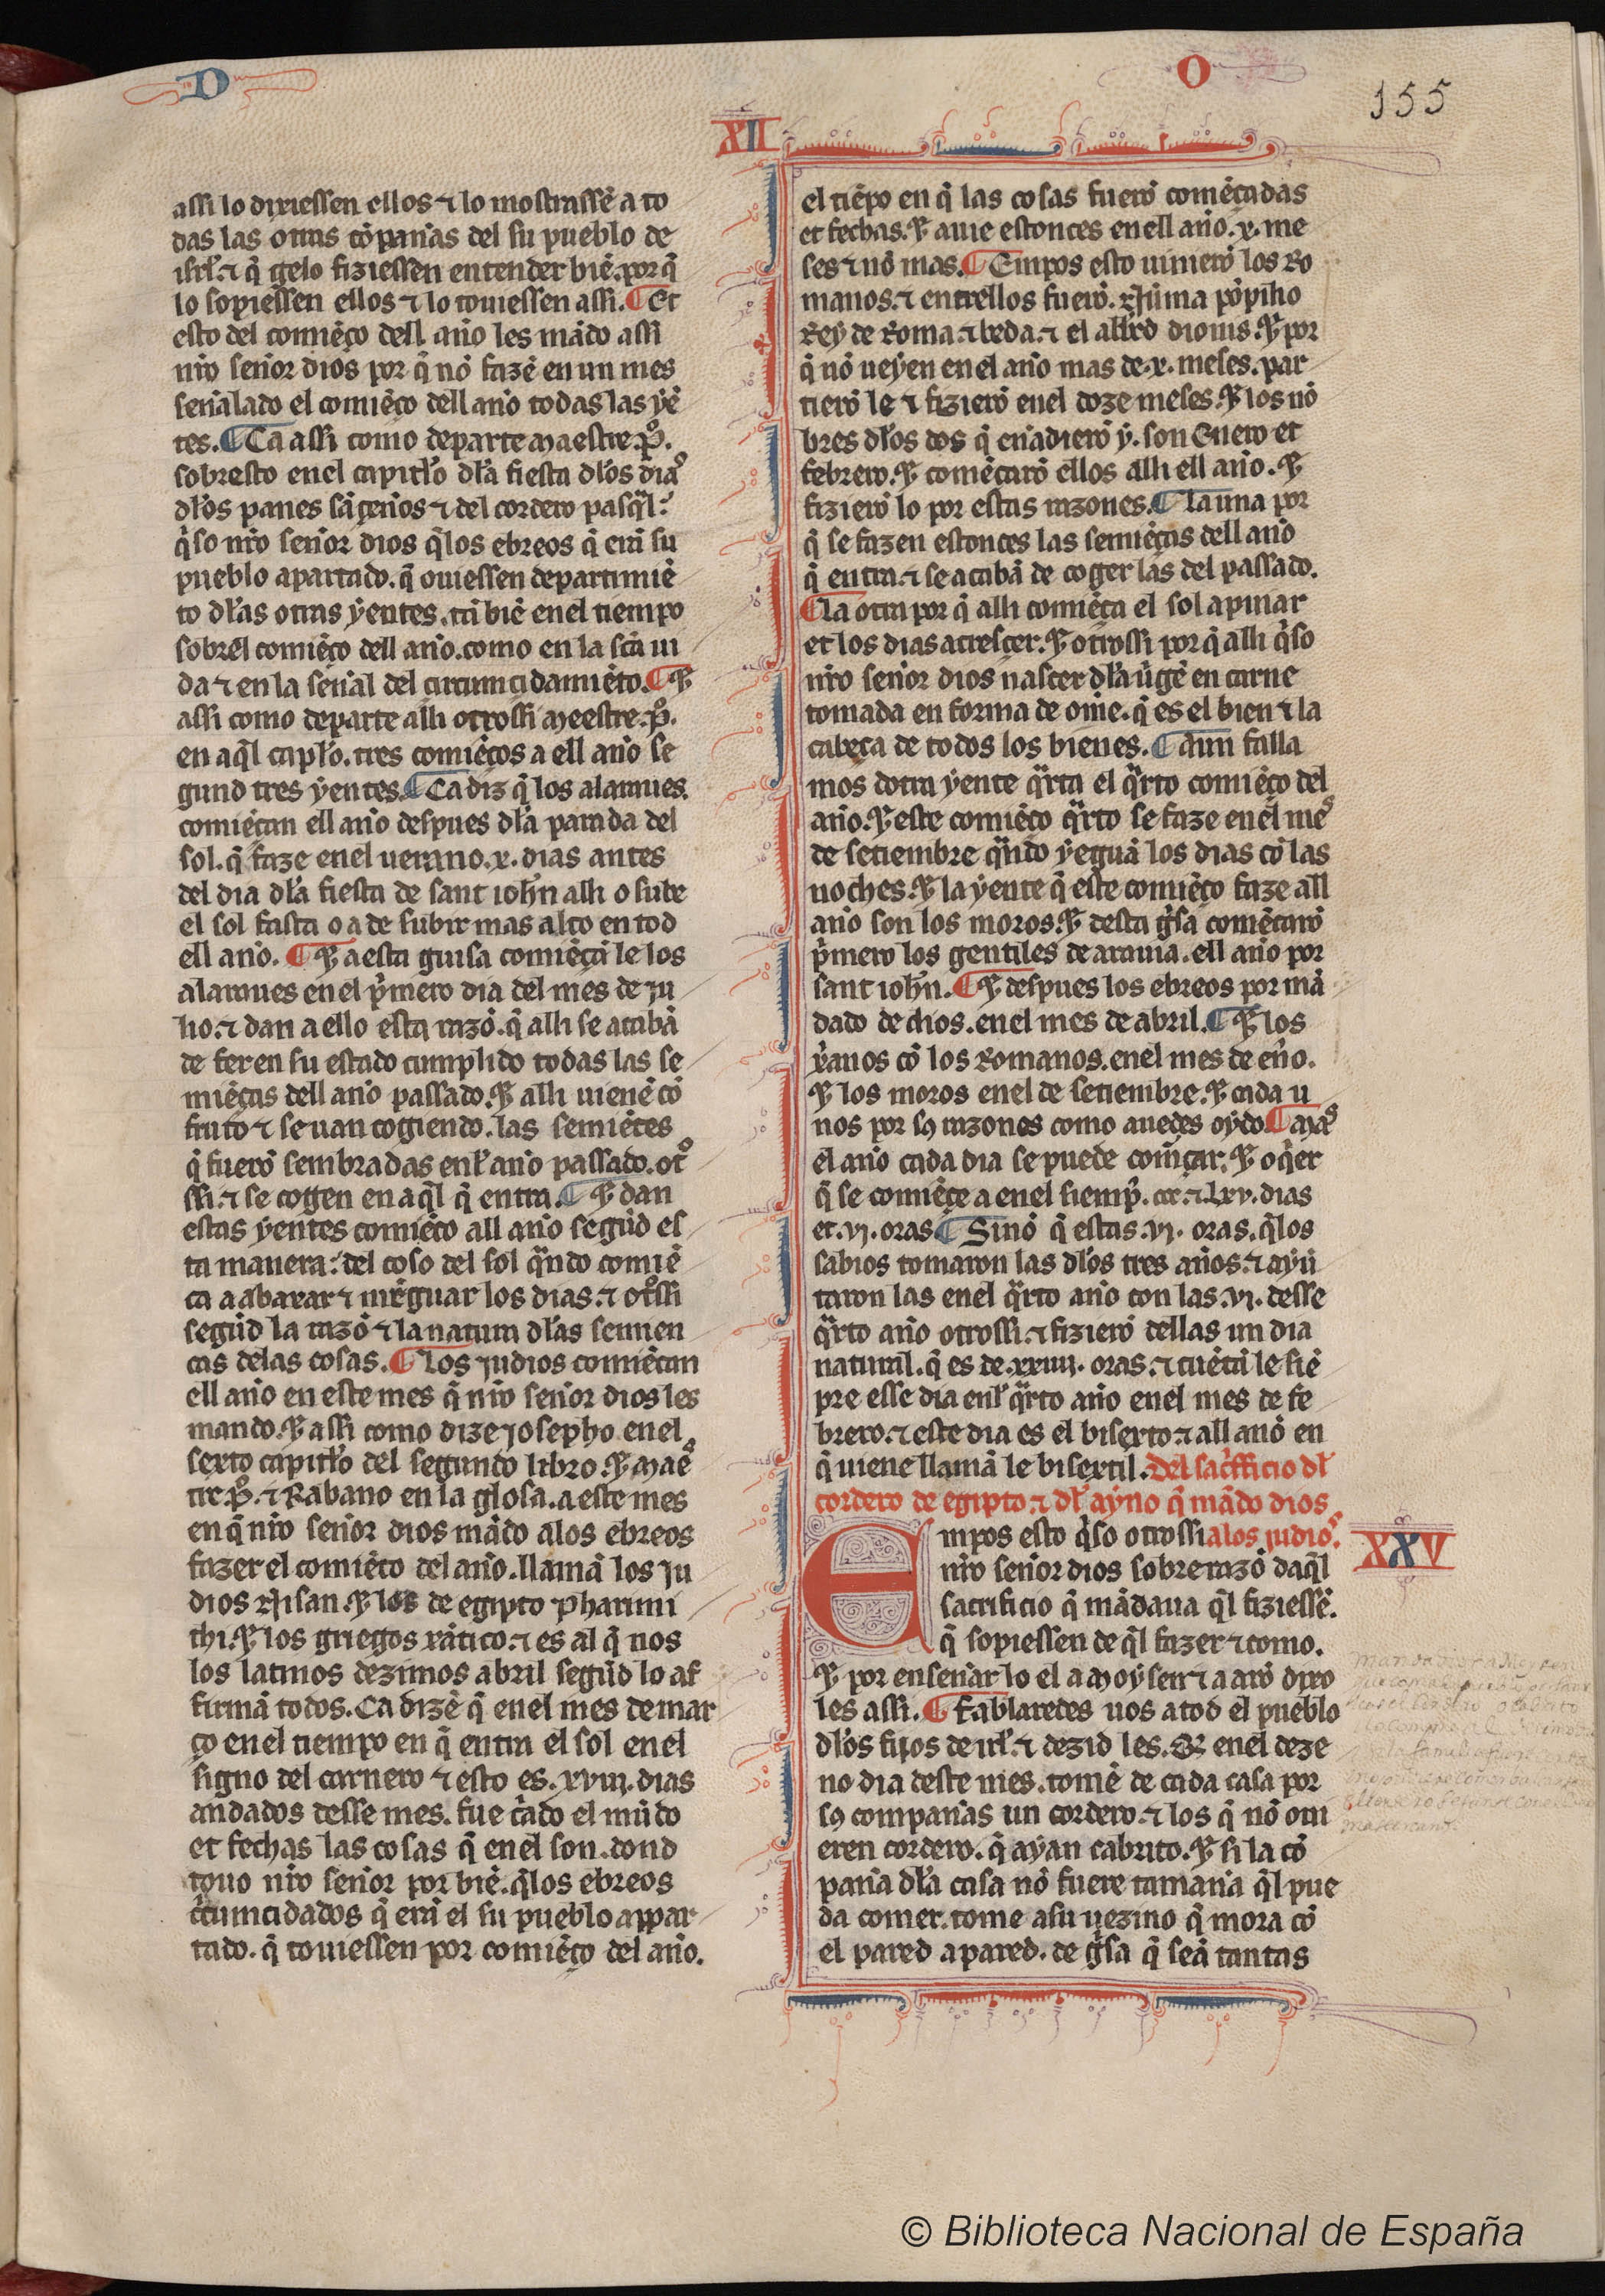 D
O
155
XII
assi lo dixiessen ellos ⁊ lo mostrassẽ a to
das las otras cõpannas del su pueblo de
isrl̃. ⁊ q̃ gelo fiziessen entender biẽ. por q̃
lo sopiessen ellos ⁊ lo touiessen assi. ¶ Et
esto del comiẽço dell anno les mãdo assi
nr̃o sennor dios por q̃ nõ fazẽ en un mes
sennalado el comiẽço dell anno todas las yẽ
tes. ¶ Ca assi como departe maestre .p̊.
sobresto enel capitl̃o dl̃a fiesta dl̃os dias
dl̃os panes sãçennos ⁊ del cordero pasq̃l.
q̃so nr̃o sennor dios q̃los ebreos q̃ erã su
pueblo apartado. q̃ ouiessen departimiẽ
to dl̃as otras yentes. tã biẽ enel tiempo
sobrel comiẽço dell anno. como en la sc̃a ui
da ⁊ en la sennal del circumcidamiẽto. ¶ ⁊
assi como departe alli otrossi meestre .p̊.
en aq̃l capl̃o. tres comiẽços a ell anno se
gund tres yentes. ¶ Ca diz q̃ los alaraues.
comiẽçan ell anno despues dl̃a parada del
sol. q̃ faze enel uerano .x. dias antes
del dia dl̃a fiesta de sant ioħn alli o sube
el sol fasta o a de subir mas alto en tod
ell anno. ¶ ⁊ a esta guisa comiẽçã le los
alaraues en el p̃mero dia del mes de ju
lio. ⁊ dan a ello esta razõ. q̃ alli se acabã
de seer en su estado cumplido todas las se
miẽças dell anno passado. ⁊ alli uienẽ cõ
fruto ⁊ se uan cogiendo. las semiẽtes
q̃ fuerõ sembradas enl̃ anno passado. otro
ssi. ⁊ se cogen en aq̃l q̃ entra. ¶ ⁊ dan
estas yentes comiẽço all anno segũd es
ta manera: del coso del sol q̃ndo comiẽ
ça a abaxar ⁊ mẽguar los dias. ⁊ otrossi
segũd la razõ ⁊ la natura dl̃as semien
ças delas cosas. ¶ Los judios comiẽçan
ell anno en este mes q̃ nr̃o sennor dios les
mando. ⁊ assi como dize josepho enel
sexto capitl̃o del segundo libro. ⁊ maes
tre .p̊. ⁊ Rabano en la glosa. a este mes
en q̃ nr̃o sennor dios mãdo alos ebreos
fazer el comiẽço del anno. llamã los ju
dios Nisan. ⁊ los de egipto pharmu
thi. ⁊ los griegos xãtico. ⁊ es al q̃ nos
los latinos dezimos abril segũd lo af
firmã todos. Ca dizẽ q̃ enel mes de mar
ço enel tiempo en q̃ entra el sol enel
signo del carnero ⁊ esto es .xviii. dias
andados desse mes. fue c̃ado el mũdo
et fechas las cosas q̃ enel son. dond
touo nr̃o sennor por biẽ. q̃los ebreos
c̃cumcidados q̃ erã el su pueblo appar
tado. q̃ touiessen por comiẽço del anno.
el tiẽpo en q̃ las cosas fuerõ comẽçadas
et fechas. ⁊ auie estonces enell anno .x. me
ses ⁊ nõ mas. ¶ Empos esto uinierõ los Ro
manos. ⁊ entrellos fuerõ. Nũma põpilio
Rey de Roma. ⁊ beda. ⁊ el abbad dionis. ⁊ por
q̃ nõ ueyen enel anno mas de .x. meses. par
tierõ le ⁊ fizierõ enel doze meses. ⁊ los nõ
bres dl̃os dos q̃ ennadierõ y. son Enero et
febrero. ⁊ comẽçarõ ellos alli ell anno. ⁊
fizierõ lo por estas razones. ¶ la una por
q̃ se fazen estonces las semiẽças dell anno
q̃ entra. ⁊ se acabã de coger las del passado.
¶ la otra por q̃ alli comiẽça el sol a pujar
et los dias a cresçer. ⁊ otrossi por q̃ alli q̃so
nr̃o sennor dios nascer dl̃a uĩgẽ en carne
tomada en forma de ome. q̃ es el bien ⁊ la
cabeça de todos los bienes. ¶ aun falla
mos dotra yente q̃rta el q̃rto comiẽço del
anno. ⁊ este comiẽço q̃rto se faze enel mes
de setiembre q̃ndo yeguã los dias cõ las
noches. ⁊ la yente q̃ este comiẽço faze all
anno son los moros. ⁊ desta g̃sa comẽçarõ
p̃mero los gentiles de arauia. ell anno por
sant ioħn. ¶ ⁊ despues los ebreos por mã
dado de dios. enel mes de abril. ¶ ⁊ los
xp̃anos cõ los Romanos. enel mes de en̉o.
⁊ los moros enel de setiembre. ⁊ cada u
nos por sus razones como auedes oydo. ¶ mas
el anno cada dia se puede com̃çar. ⁊ o q̃er
q̃ se comiẽçe a enel siemp̃. ccc. ⁊ Lxv. dias
et .vj. oras ¶ Sinõ q̃ estas .vj. oras. q̃los
sabios tomaron las dl̃os tres annos. ⁊ ayũ
taron las enel q̃rto anno con las .vj. desse
q̃rto anno otrossi. ⁊ fizierõ dellas un dia
natural. q̃ es de .xxiiij. oras. ⁊ cuẽtã le siẽ
pre esse dia enl̃ q̃rto anno enel mes de fe
brero. ⁊ este dia es el bisexto. ⁊ all anno en
q̃ uiene llamã le bisextil. Del sac̃fficio dl̃
cordero de egipto. ⁊ dl̃ ayno q̃ mãdo dios
Empos esto q̃so otrossi alos judios.
XXV
nr̃o sennor dios sobre razõ daq̃l
sacrificio q̃ mãdaua q̃l fiziessẽ.
q̃ sopiessen de q̃l fazer ⁊ como.
⁊ por ensennar lo el a moysen ⁊ a aarõ dixo
les assi. ¶ Fablaredes uos a tod el pueblo
dl̃os fijos de irl̃. ⁊ dezid les. Q̃ enel deze
no dia deste mes. tomẽ de cada casa por
sus compannas un cordero. ⁊ los q̃ nõ oui
eren cordero. q̃ ayan cabrito. ⁊ si la cõ
panna dl̃a casa nõ fuere tamanna q̃l pue
da comer. tome a su uezino q̃ mora cõ
el pared a pared. de g̃sa q̃ seã tantas
© Biblioteca Nacional de España